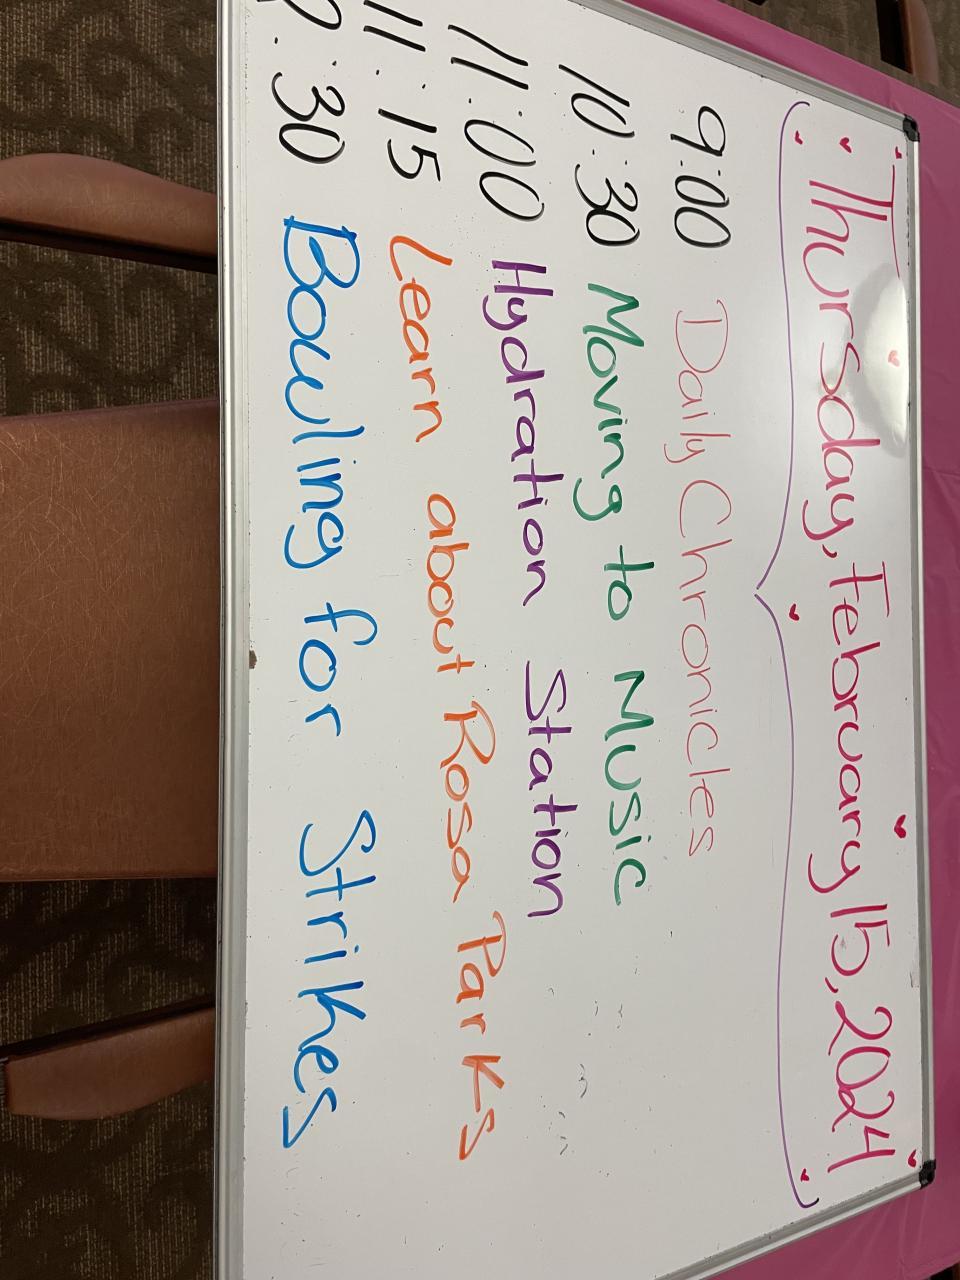 Thursday, February 15, 2024
9:00 Daily Chronicles
10:30 Moving to Music
11:00 Hydration Station
11:15 Learn about Rosa Parks
:30 Bowling for Strikes